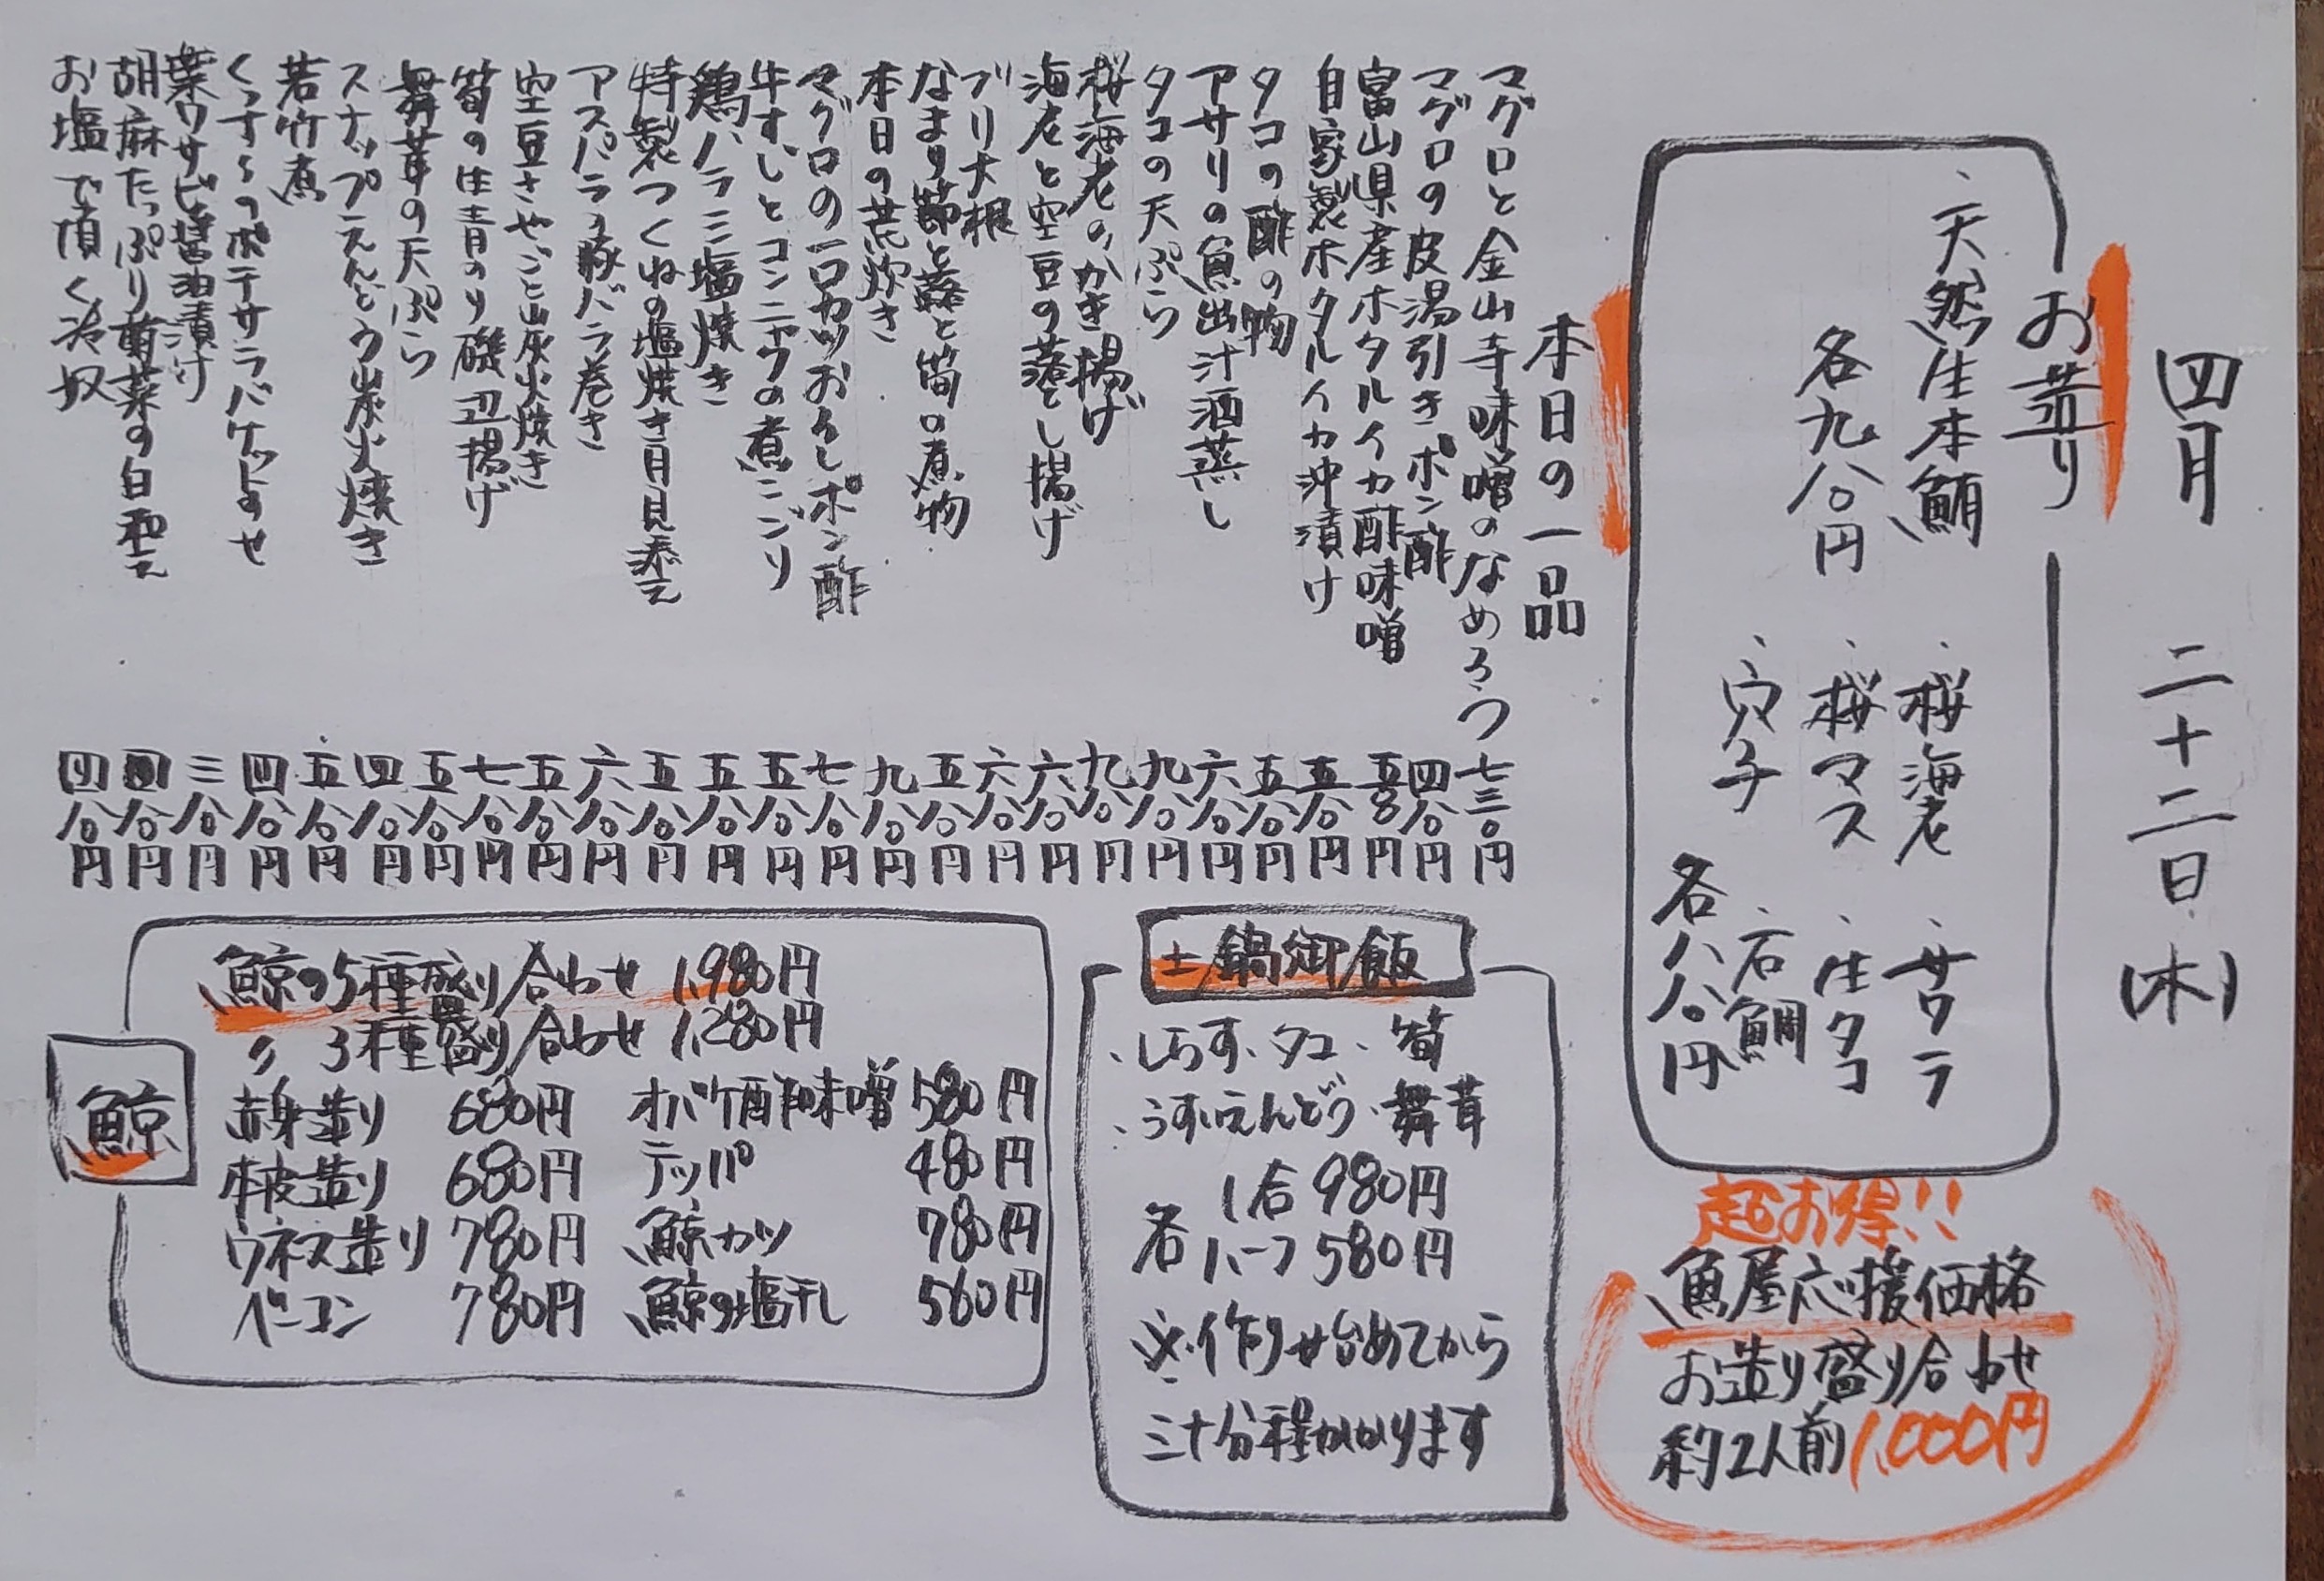 四月 二十二日(木)
お造り
・天然生本鮪
各九八〇円
・桜海老 ・サワラ
・桜マス ・生タコ
・穴子 ・石鯛
各八八〇円
本日の一品
マグロと金山寺味噌のなめろう 七三〇円
マグロの皮湯引きポン酢 四八〇円
富山県産ホタルイカ酢味噌 五八〇円
自家製ホタルイカ沖漬け 五八〇円
タコの酢の物 五八〇円
アサリの魚出汁酒蒸し 六八〇円
タコの天ぷら 九八〇円
桜海老のかき揚げ 九八〇円
海老と空豆の落とし揚げ 六八〇円
ブリ大根 六八〇円
なまり節と蕗と筍の煮物 五八〇円
本日の荒炊き 九八〇円
マグロの一口カツおろしポン酢 七八〇円
牛すじとコンニャクの煮こごり 五八〇円
鶏ハラミ塩焼き 五八〇円
特製つくねの塩焼き月見添え 五八〇円
アスパラの豚バラ巻き 六八〇円
空豆さやごと炭火焼き 五八〇円
筍の生青のり磯辺揚げ 七八〇円
舞茸の天ぷら 五八〇円
スナップえんどう炭火焼き 四八〇円
若竹煮 五八〇円
くんすくのポテサラバケットのせ 四八〇円
葉ワサビ醤油漬け 三八〇円
胡麻たっぷり菊菜の白和え 四八〇円
お塩で頂く冷奴 四八〇円
超お得!!
魚屋応援価格
お造り盛り合わせ
約2人前1,000円
土鍋御飯
・しらす・タコ・筍
・うすいえんどう・舞茸
各 1合 980円
ハーフ 580円
※作り始めてから
三十分程かかります
鯨
鯨の5種盛り合わせ 1,980円
〃 3種盛り合わせ 1,280円
赤身造り 680円 オバケ酢味噌 580円
本皮造り 680円 テッパ 480円
ウネス造り 780円 鯨カツ 780円
ベーコン 780円 鯨の塩干し 560円